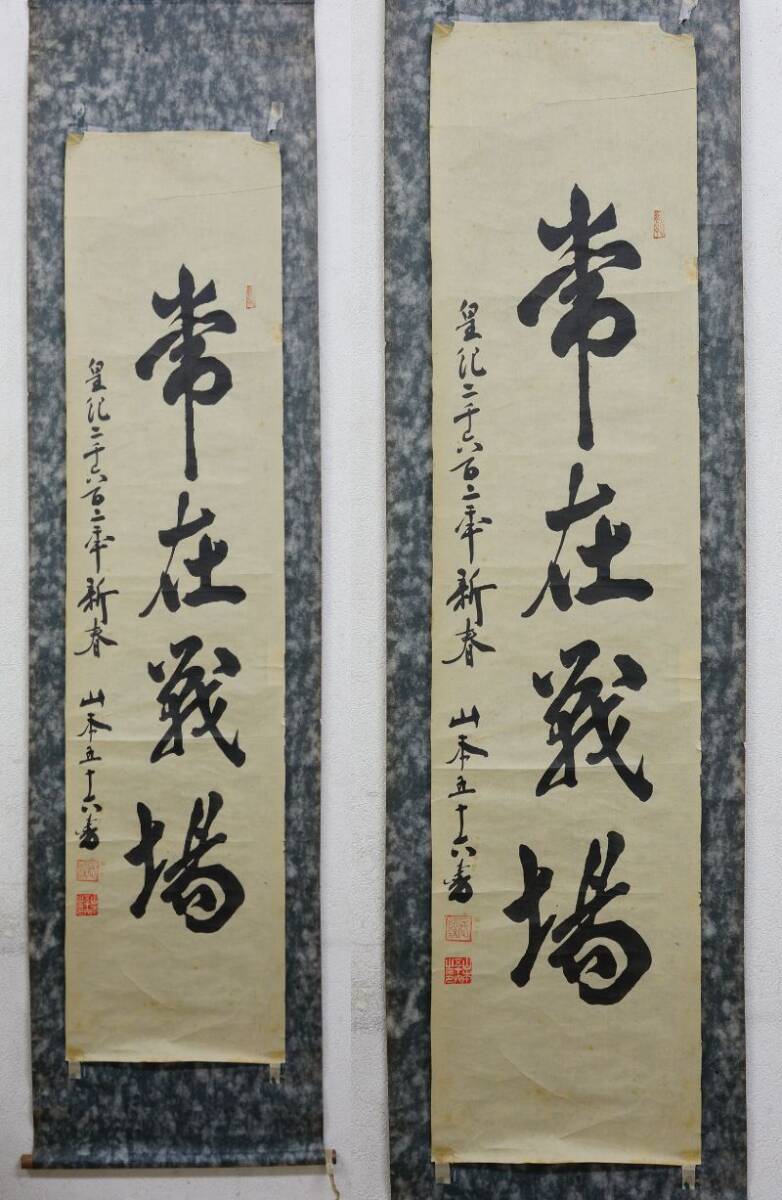 常在戦場
皇紀二千六百二年新春 山本五十六書
常在戦場
皇紀二千六百二年新春 山本五十六書